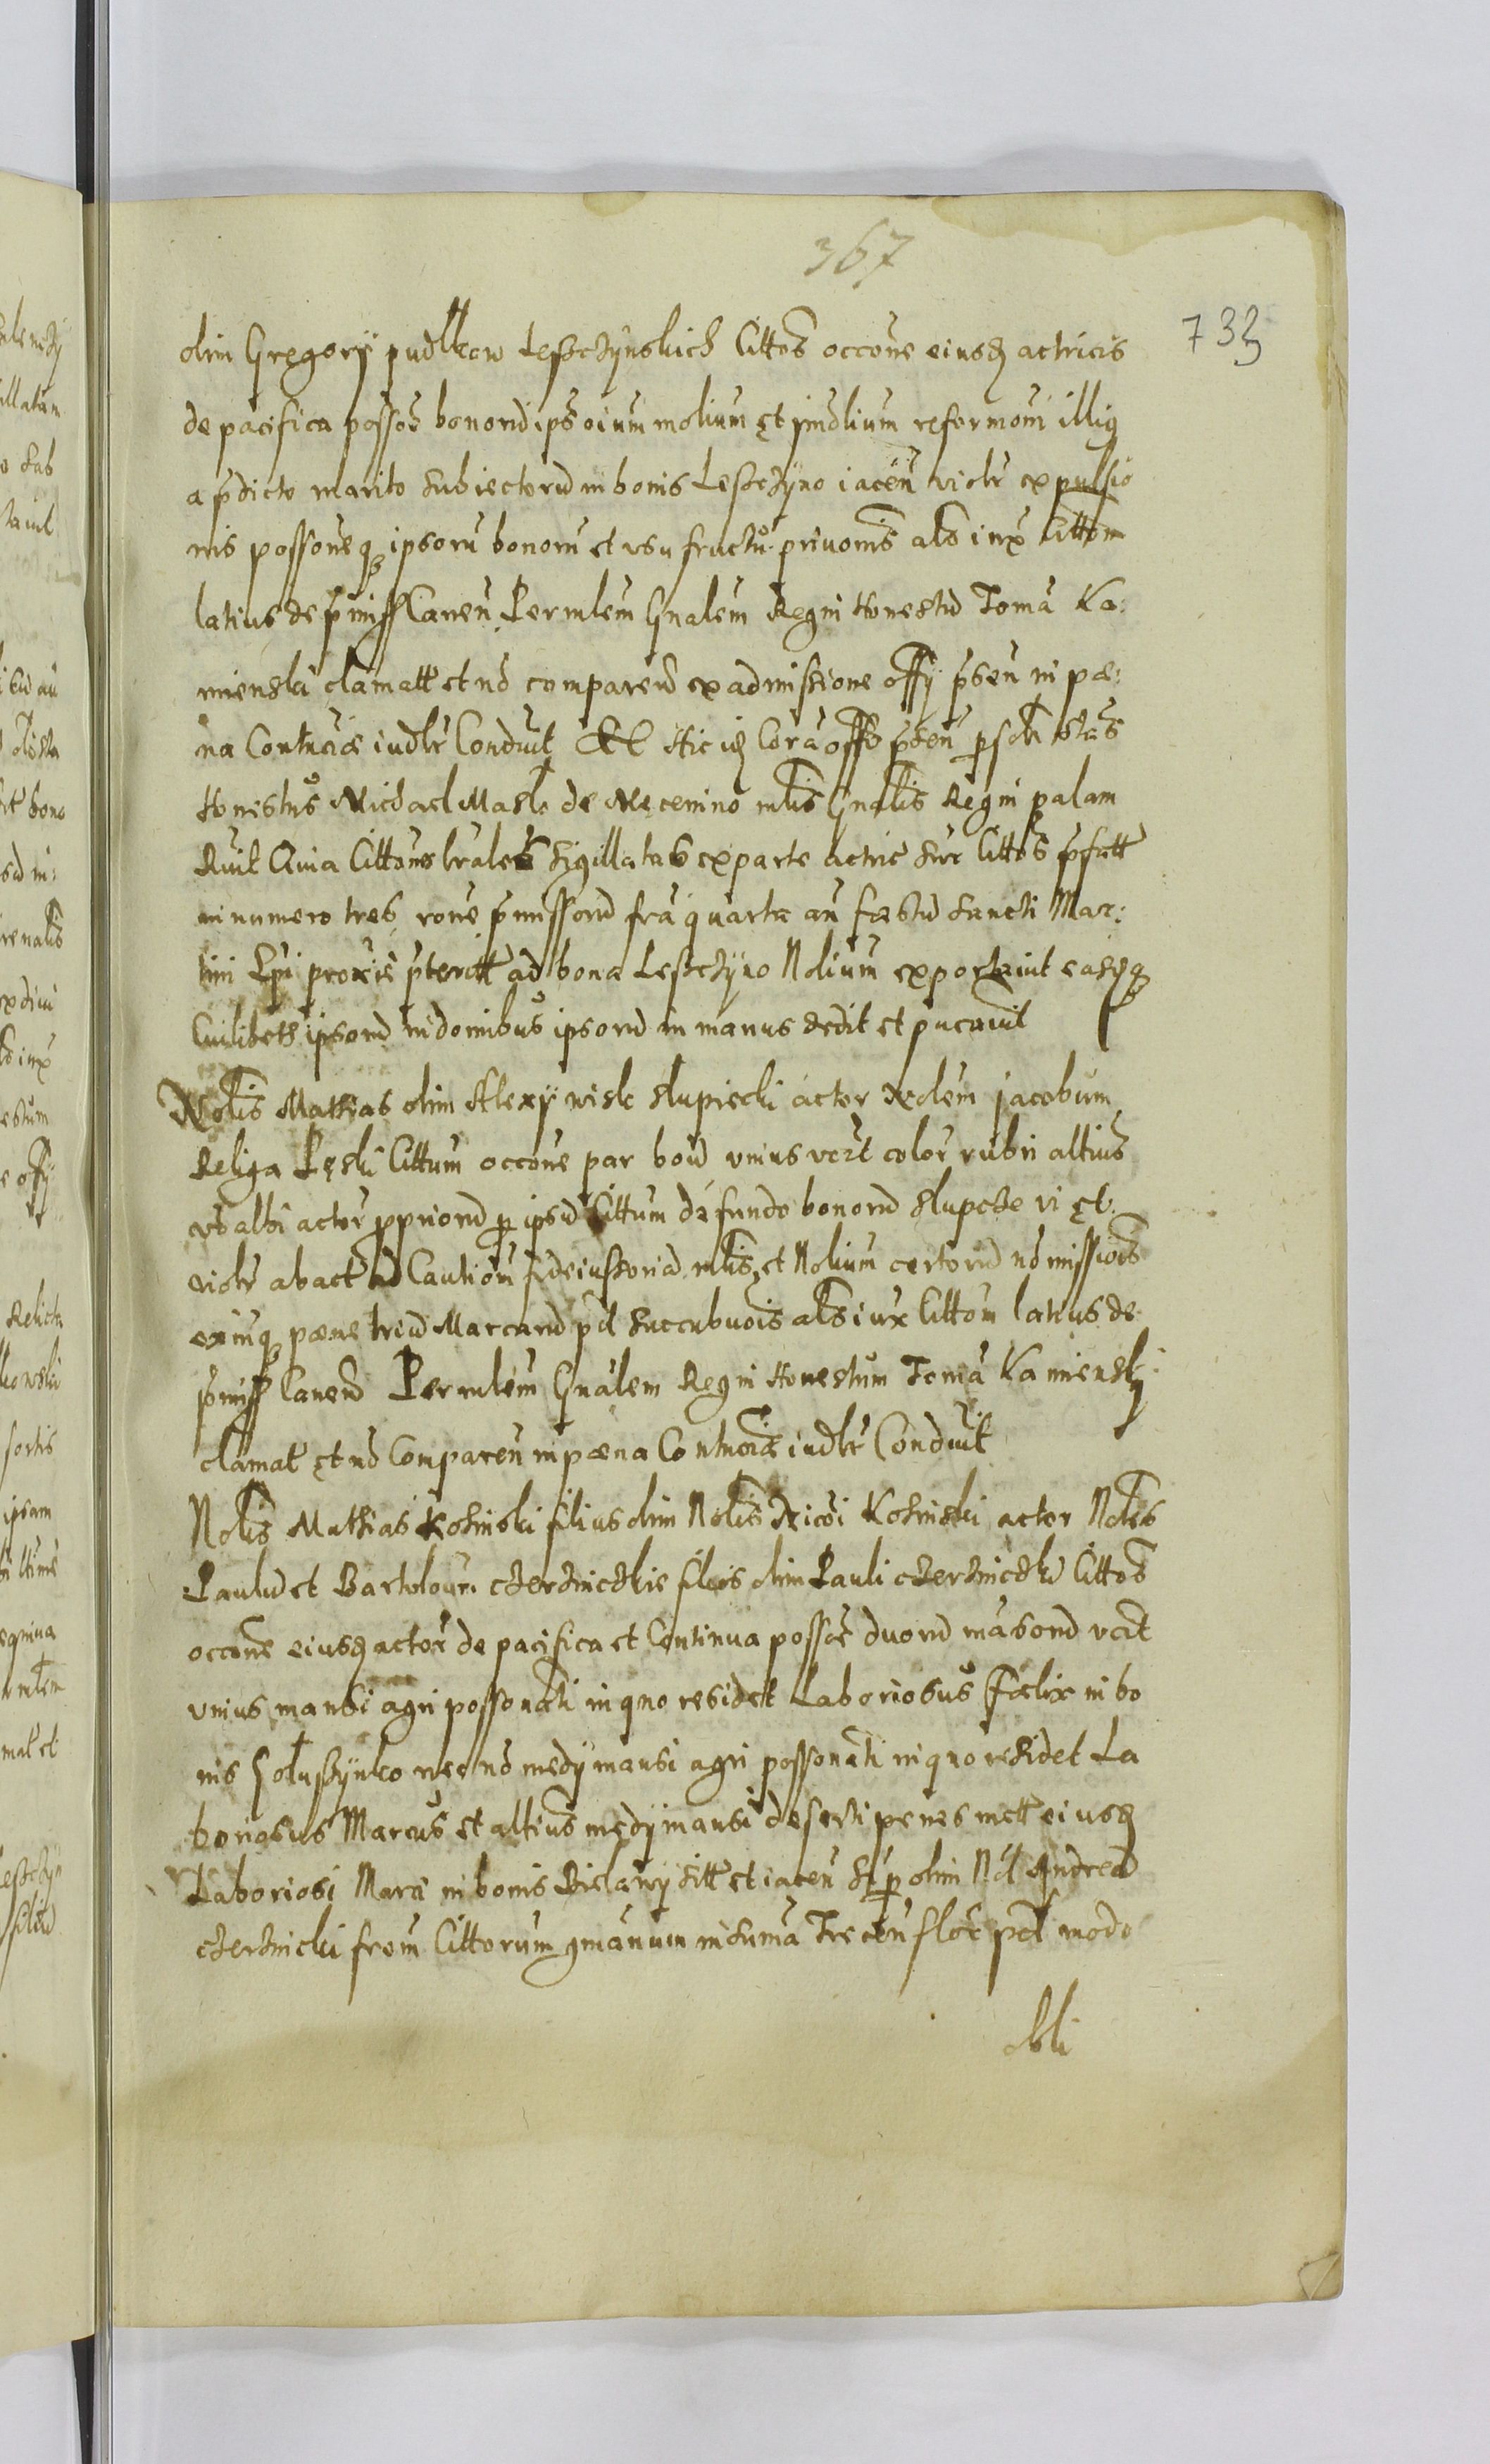 367
733
olim Gregorÿ pudlkow Leßczÿnskich Cittos occone eiusd actricis
de pacifica possos bonord ips oium molium et imolium reformom illig
a pdicto marito subiectord in bonis Leßczÿno iacen violr expulsio
nis possoneq ipsoru bonoru et usu fructu privonis als iux Cittom
latius de pmiss Canen Per mlem Gnalem Regni Honestu Toma Ka:
mienski clamatt et no comparend ex admissione offÿ psen in pæ:
na Contucie iudlr Conduit Et Hic id Cora offo psen psolr stas
Honestus Michael Maslo de Mecenino mlis Gnalis Regni palam
Ruit Quia Cittones lrales sigillatas ex parte actric sur Cittos pfatt
in numero tres rone pmissord fra quarta an fæstu sancti Mar:
tini Epi proxie pteritt ad bona Leßczÿno Nolium exportavit easdq
Cuilibeth ipsord in domibus ipsord in manus dedit et pucavit
Nolis Mathias olim Alexÿ wislc slupiecki actor Nolem jacobum
Religa Pęski Cittum occone par boud unius vczt color rubri altius
vo albi actor ppriord p ipsu Cittum de fundo bonord slupcze vi et
violr abact ad Cautiom fideiussoria mlis et Nolium certord no missiois
exinq pæne triu Marcard pcl succubuois als iux Cittom latius de
pmiss Canend Per mlem Gnalem Regni Honestum Toma Kamiensky
clamat et no Comparen in pæna Contucie iudlr Conduit
Nolis Mathias Kosinski filius olim Nolis Nicoi Kosinski actor Noles
Paulu et Bartolom czerznickie filios olim Pauli czerznicki Cittos
occone eiusd actor de pacifica et Continua possoe duord mansord vczt
unius mansi agri possonati in quo residet Laboriosus Fœlix in bo
nis Solußÿnko nec no medÿ mansi agri possonati in quo residet La
boriosus Marcus et altius medÿ mansi deserti penes mett eiusd
Laboriosi Marci in bonis Bielawÿ sitt et iacen p olim Nol Andread
czerznicki frem Cittorum gmanum in suma Trecen flor pcl modo
obli